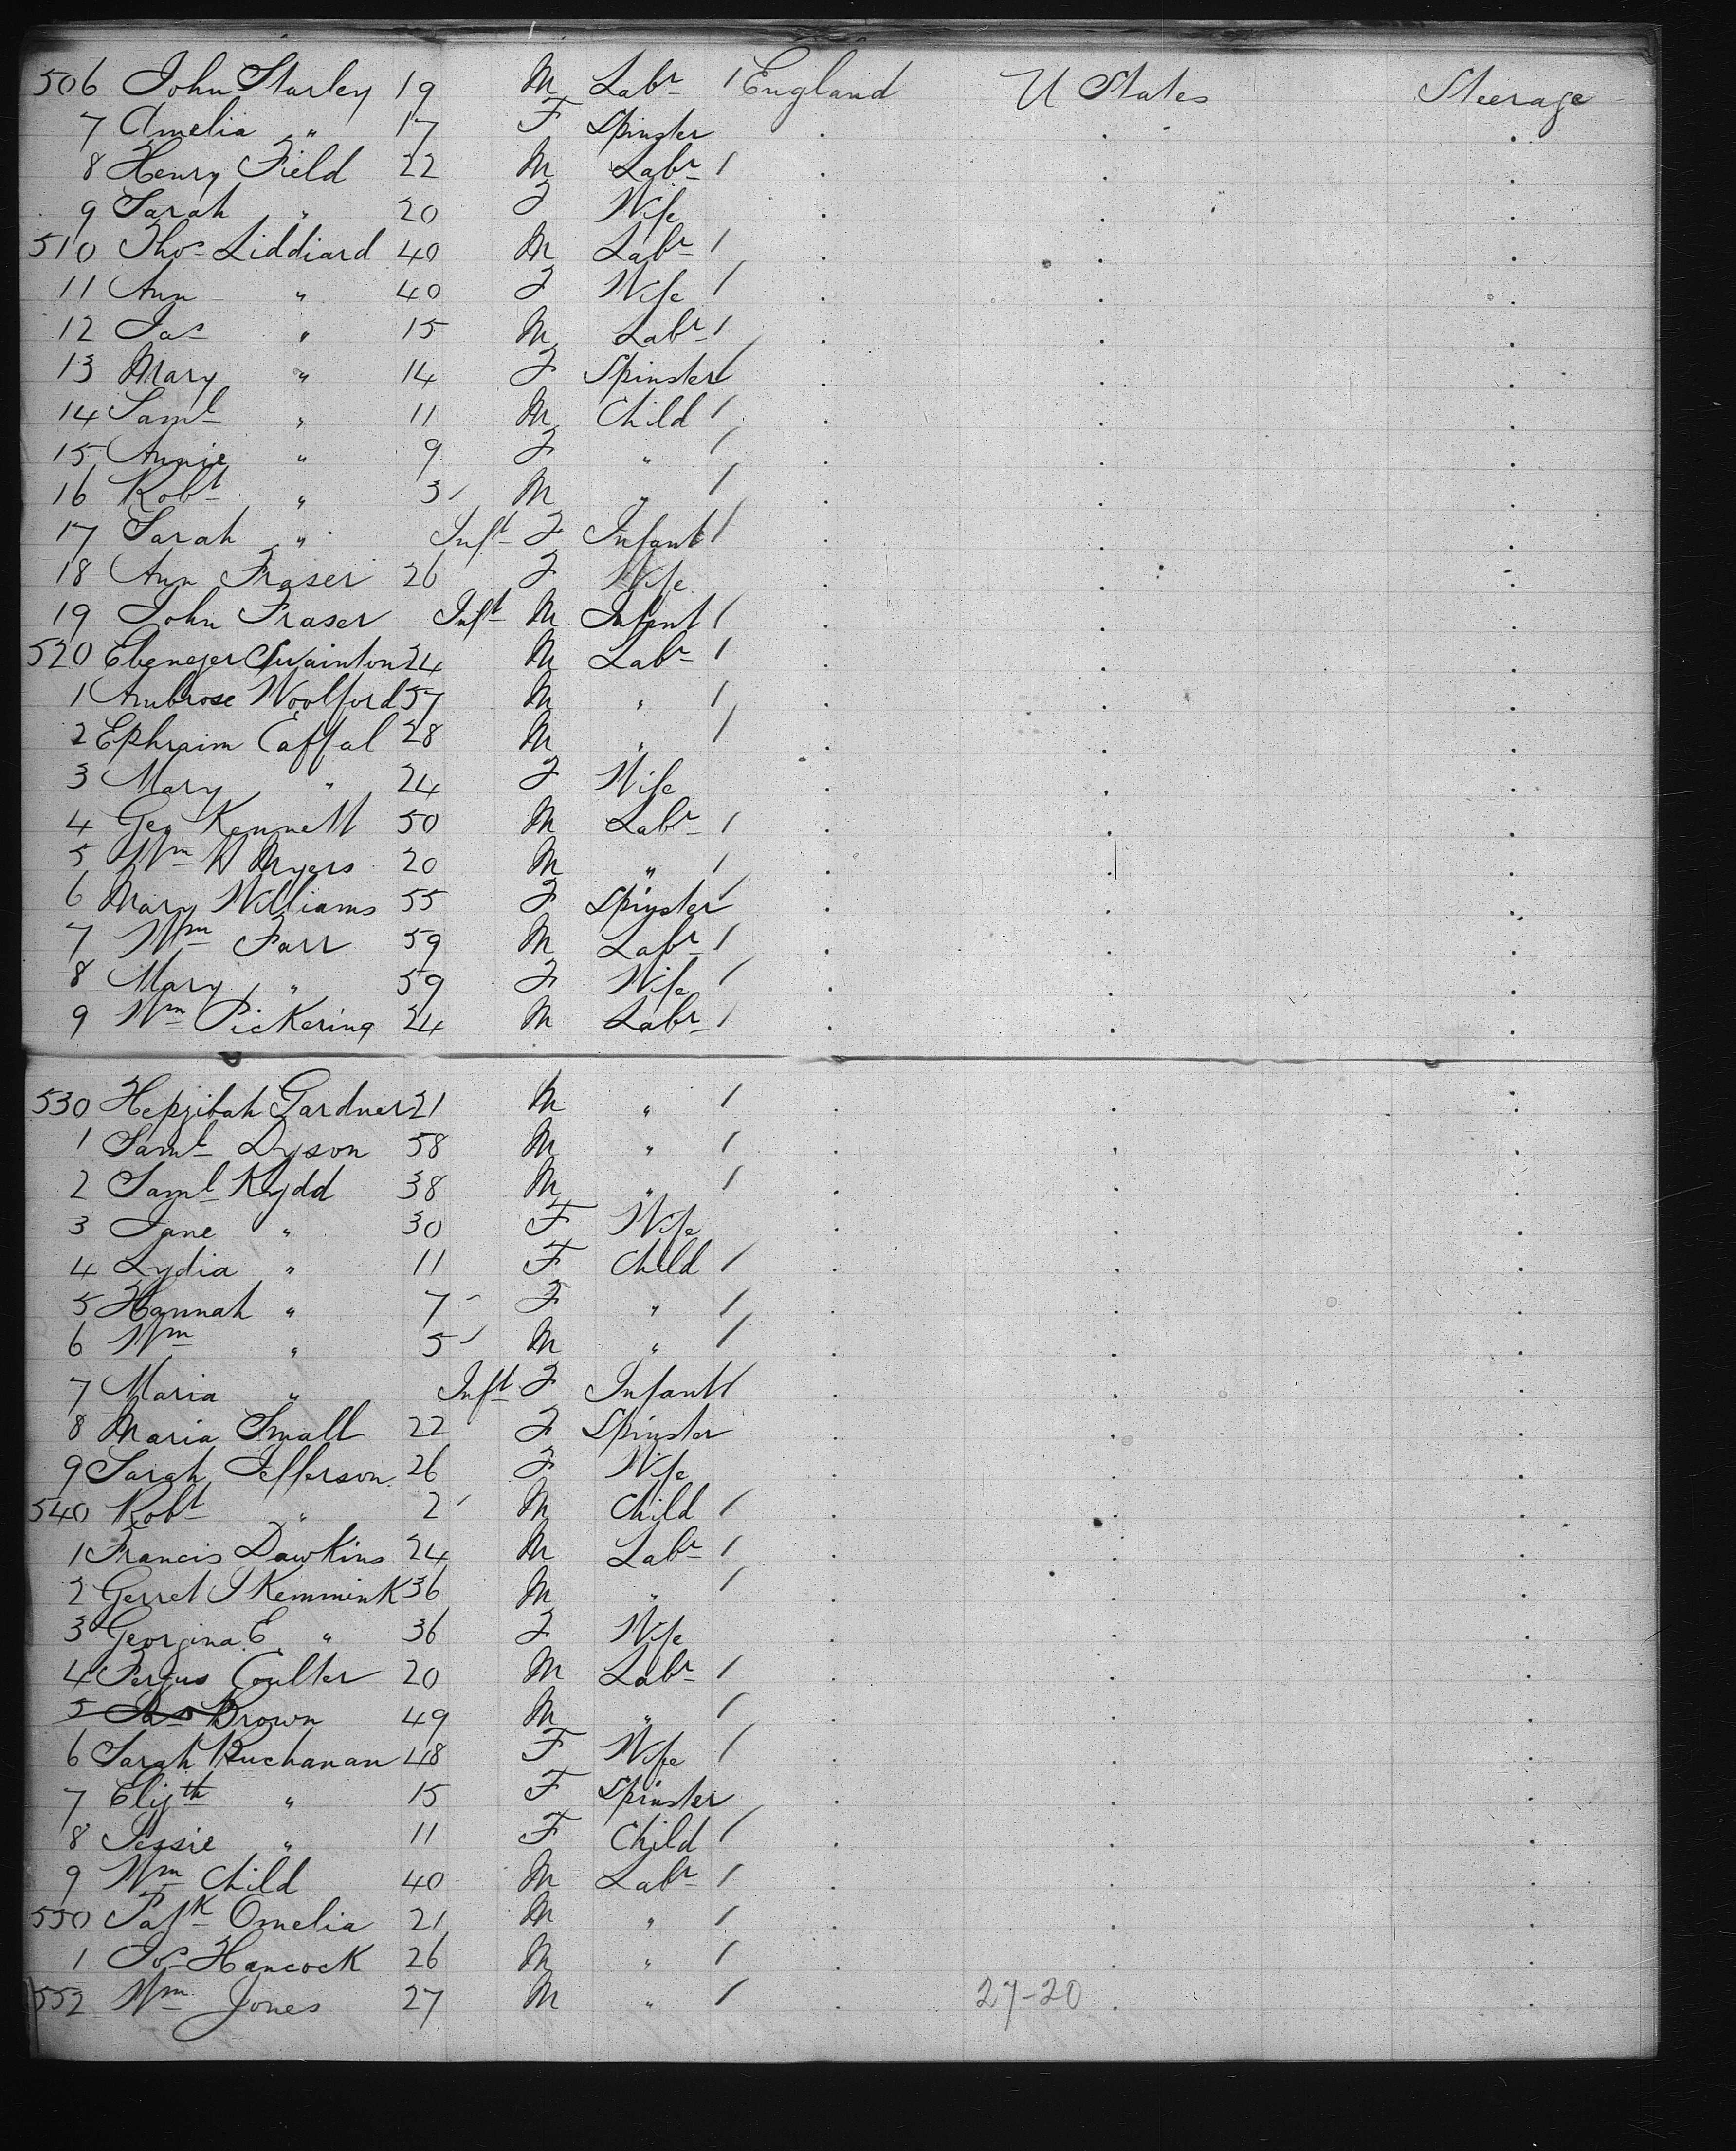 506 John Starley 19 M Labr 1 England U States Steerage
7 Amelia " 17 F Spinster . . .
8 Henry Field 22 M Labr 1 . . .
9 Sarah " 20 F Wife . . .
510 Thos Liddiard 40 M Labr 1 . . .
11 Ann " 40 F Wife 1 . . .
12 Jas " 15 M Labr 1 . . .
13 Mary " 14 F Spinster 1 . . .
14 Saml " 11 M Child 1 . . .
15 Annie " 9 F " 1 . . .
16 Robt " 3 M " 1 . . .
17 Sarah " Inft F Infant 1 . . .
18 Ann Fraser 26 F Wife . . .
19 John Fraser Inft M Infant 1 . . .
520 Ebenezer Swainton 24 M Labr 1 . . .
1 Ambrose Woolford 57 M " 1 . . .
2 Ephraim Caffal 28 M " 1 . . .
3 Mary " 24 F Wife . . .
4 Geo Kennett 50 M Labr 1 . . .
5 Wm H Myers 20 M " 1 . . .
6 Mary Williams 55 F Spinster 1 . . .
7 Wm Farr 59 M Labr 1 . . .
8 Mary " 59 F Wife 1 . . .
9 Wm Pickering 24 M Labr 1 . . .
530 Hepzibah Gardner 21 M " 1 . . .
1 Saml Dyson 58 M " 1 . . .
2 Saml Kydd 38 M " 1 . . .
3 Jane " 30 F Wife . . .
4 Lydia " 11 F Child 1 . . .
5 Hannah " 7 F " 1 . . .
6 Wm " 5 M " 1 . . .
7 Maria " Inft F Infant 1 . . .
8 Maria Small 22 F Spinster . . .
9 Sarah Jefferson 26 F Wife . . .
540 Robt " 2 M Child 1 . . .
1 Francis Dawkins 24 M Labr 1 . . .
2 Gerret J Kemmink 36 M " 1 . . .
3 Georgina E " 36 F Wife . . .
4 Fergus Coulter 20 M Labr 1 . . .
5 Jas Brown 49 M " 1 . . .
6 Sarah Buchanan 48 F Wife 1 . . .
7 Elizth " 15 F Spinster . . .
8 Jessie " 11 F Child 1 . . .
9 Wm Child 40 M Labr 1 . . .
550 Patk Omelia 21 M " 1 . . .
1 Jos Hancock 26 M " 1 . . .
552 Wm Jones 27 M " 1 . 27-20 . .